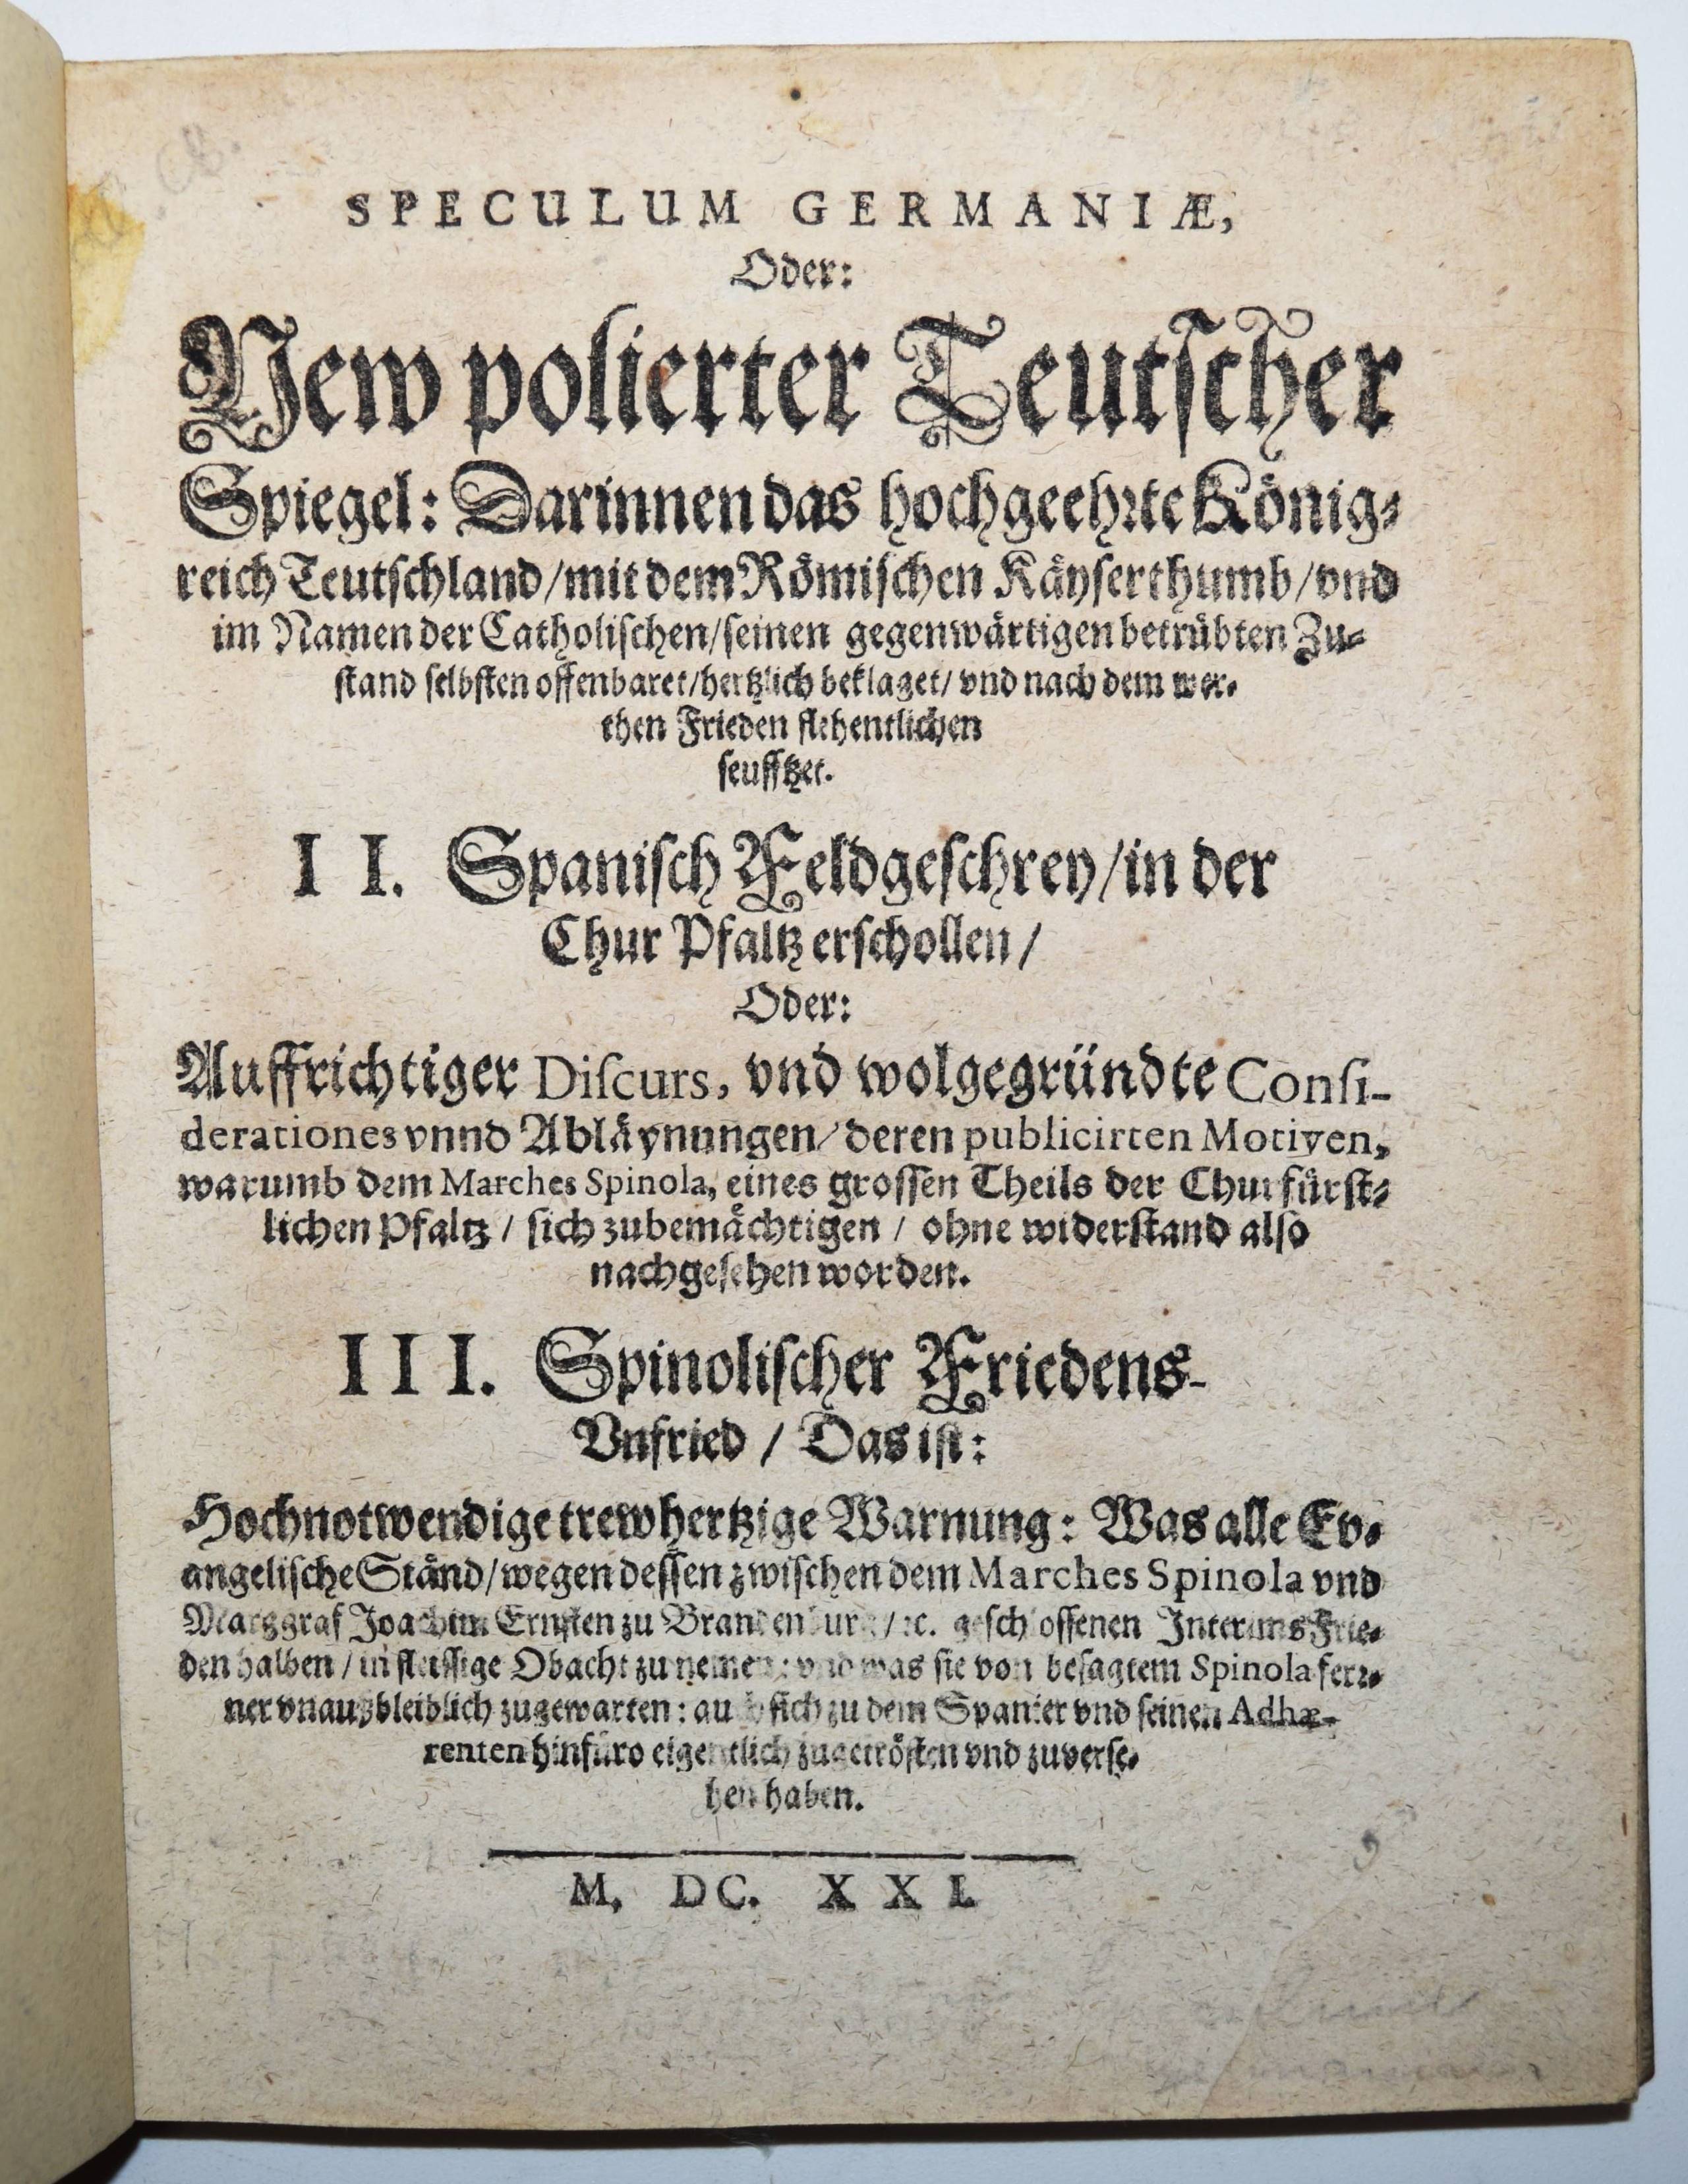 SPECULUM GERMANIÆ,
Oder:
New polierter Teutscher
Spiegel: Darinnen das hochgeehrte König⸗
reich Teutschland/mit dem Römischen Käyserthumb/vnd
im Namen der Catholischen/seinen gegenwärtigen betrübten Zu⸗
stand selbsten offenbaret/hertzlich beklaget/vnd nach dem wer⸗
then Frieden flehentlichen
seufftzet.
II. Spanisch Feldgeschrey/in der
Chur Pfaltz erschollen/
Oder:
Auffrichtiger Discurs, vnd wolgegründte Consi-
derationes vnnd Abläynungen/deren publicirten Motiven,
warumb dem Marches Spinola, eines grossen Theils der Churfürst⸗
lichen Pfaltz / sich zubemächtigen / ohne widerstand also
nachgesehen worden.
III. Spinolischer Friedens-
Vnfried / Das ist:
Hochnotwendige trewhertzige Warnung: Was alle Ev⸗
angelische Ständ/wegen dessen zwischen dem Marches Spinola vnd
Marggraf Joachim Ernsten zu Brandenburg/ꝛc. geschlossenen Interims Frie⸗
den halben / in fleissige Obacht zu nemen: vnd was sie von besagtem Spinola fer⸗
ner vnaußbleiblich zugewarten: auch sich zu dem Spanier vnd seinen Adhæ-
renten hinfüro eigentlich zugetrösten vnd zuverse⸗
hen haben.
M. DC. XXI.